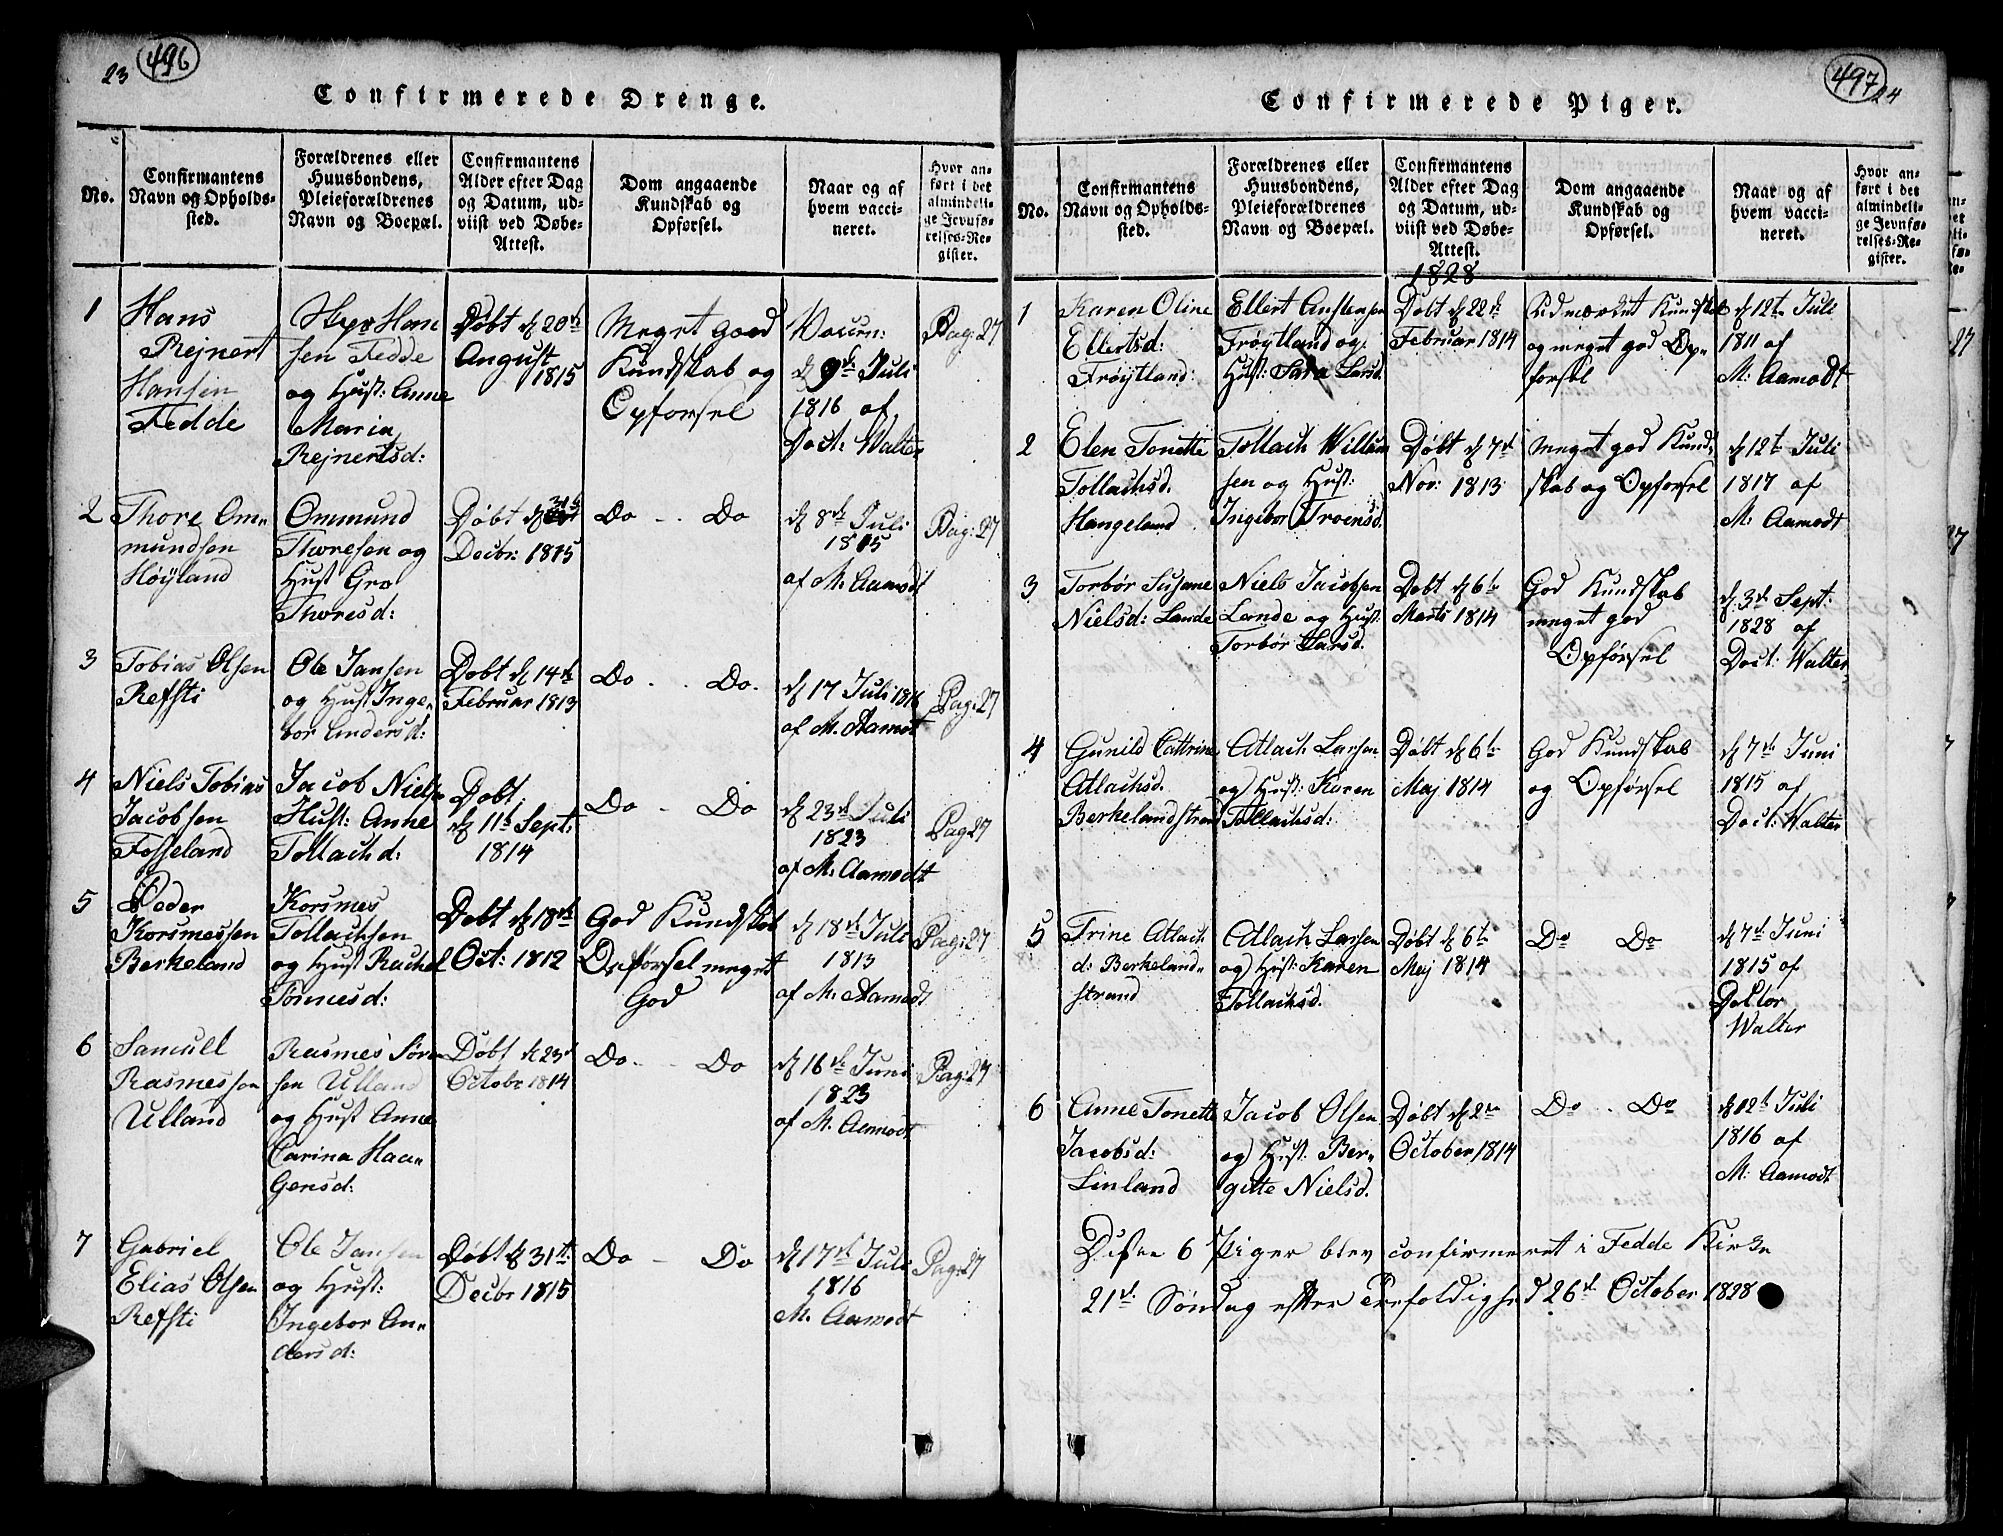 23
496
Confirmerede Drenge.
No.
Confirmantens
Navn og Opholds-
sted.
Forældrenes eller
Huusbondens,
Pleieforældrenes
Navn og Boepæl.
Confirmantens
Alder efter Dag
og Datum, ud-
viist ved Døbe-
Attest.
Dom angaaende
Kundskab og
Opførsel.
Naar og af
hvem vacci-
neret.
Hvor an-
ført i det
almindeli-
ge Jevnfø-
relses-Re-
gister.
1
Hans
Rejnert
Hansen
Fedde
Han
sen Fedde
og Hust: Anne
Maria
Rejnertsd:
Døbt d 20de
August
1815
Meget good
Kundskab og
Opforsel
Vaccin:
d 9de Juli
1816 af
Doct: Walter
Pag: 27
2
Thore Om-
mundsen
Høyland
Ommund
Thoresen og
Hust Gro
Thoresd:
Døbt d 31t
Decbr: 1815
Do - - Do
d 8de Juli
1815
af M. Aamodt
Pag: 27
3
Tobias Olsen
Refsti
Ole Jansen
og Hust Inge-
bor Andersd:
Døbt d 14de
Februar 1813
Do - - Do.
d 17 Juli 1816
af M. Aamodt
Pag: 27
4
Niels Tobias
Jacobsen
Fosseland
Jacob Niels
Hust: Anne
Tollachd:
Døbt
d 11te Sept:
1814
Do - Do
d 23de Juli
1823
af M. Aamodt
Pag 27
5
Peder
Korsmessen
Berkeland
Korsmes
Tollachsen
og Hust Rachel
Tønnesd:
Døbt d 18de
Oct: 1812
God Kundskab
Opførsel meget
God
d 18de Juli
1813
af M. Aamodt
Pag: 27
6
Samuel
Rasmessen
Ulland
Rasmes Søren
sen Ulland
og Hust Anne
Carina Haa-
gensd:
Døbt d 23d
Octobr 1814
Do - - Do
d 16de Juni
1823
af M. Aamodt
Pag: 27
7
Gabriel
Elias Olsen
Refsti
Ole Jansen
og Hust:
Ingebor An-
dersd:
Døbt d 31te
Decbr 1815
Do - Do
d 17de Juli
1816
M. Aamodt
Pag: 27
497
24
Confirmerede Piger.
No.
Confirmantens
Navn og Opholds-
sted.
Forældrenes eller
Huusbondens,
Pleieforældrenes
Navn og Boepæl.
Confirmantens
Alder efter Dag
og Datum, ud-
viist ved Døbe-
Attest.
1828
Dom angaaende
Kundskab og
Opførsel.
Naar og af
hvem vacci-
neret.
Hvor an-
ført i det
almindeli-
ge Jevnfø-
relses-Re-
gister.
1
Karen Oline
Ellertsd:
Frøytland:
Ellert Anstensen
Frøytland og
Hust: Sara Larsd.
Døbt d 22de
Februar 1814
Udmærket Kundskab
og meget god Op-
forsel
d 12te Juli
1811 af
M: Aamodt
2
Elen Tonette
Tollachsd.
Hangeland
Tollach Willum
sen og Hust:
Ingebor Troensd.
Døbt d 7de
Nov: 1813
Meget god Kund-
skab og Opforsel
d 12te Juli
1817 af
M. Aamodt
3
Torbør Susane
Nielsd: Lande
Niels Jacobsen
Lande og Hust:
Torbør Larsd.
Døbt d 6te
Marts 1814
God Kundskab
meget god
Opførsel
d. 3de Sept:
1828 af
Doct: Walter
4
Gunild Cattrine
Atlachsd.
Berkelandstrand
Atlach Larsen
og Hust: Karen
Tollachsd:
Døbt d 6te
Maj 1814
God Kundskab
og Opførsel
d 7de Juni
1815 af
Doct: Walter
5
Trine Atlach
d: Berkeland-
strand
Atlach Larsen
og Hust: Karen
Tollachsd.
Døbt d 6te
Maj 1814
Do Do
d 7de Juni
1815 af
Doktor
Walter
6
Anne Tonette
Jacobsd:
Linland
Jacob Olsen
og Hust: Ber-
gitte Nielsd.
Døbt d 2den
October 1814
Do - Do
d 12te Juli
1816 af
M: Aamodt
Disse 6 Piger blev confirmeret i Fedde Kirke
21de Søndag efter Trefoldighed 26de October 1828